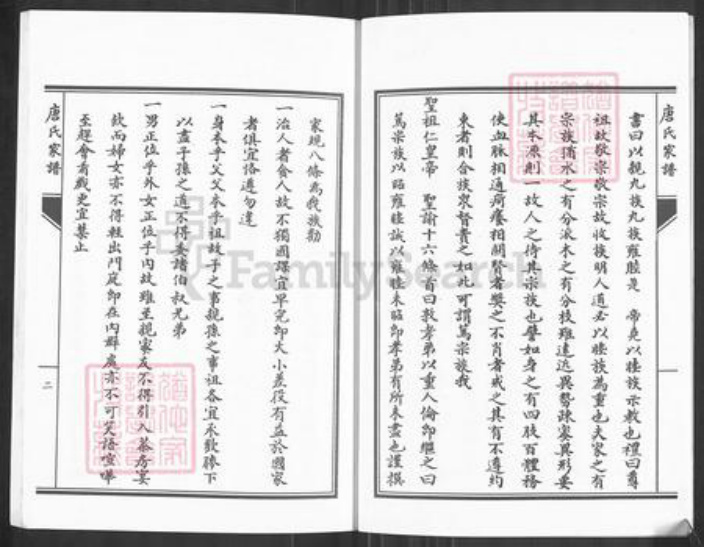 唐氏家譜
書曰以親九族九族雍睦是 帝堯以睦族示教也禮曰尊
祖故敬宗敬宗故收族明人道必以睦族為重也夫家之有
宗族猶水之有分派木之有分枝雖遠近異勢疎宻異形要
其本原則一故人之待其宗族也譬如身之有四肢百體務
使血脉相通疴癢相關賢者獎之不肖者戒之其有不遵約
束者則合族衆督責之如此可謂篤宗族哉
聖祖仁皇帝 聖諭十六條首曰敦孝弟以重人倫即繼之曰
篤宗族以昭雍睦誠以雍睦未昭即孝弟有所未盡也謹撰
家規八條為我族勖
一治人者食人故不獨國課宜早完即大小差役有益於國家
者俱宜恪遵勿違
一身本乎父父本乎祖故子之事親孫之事祖各宜承歡膝下
以盡子孫之道不得委諸伯叔兄弟
一男正位乎外女正位乎内故雖至親宻友不得引入茶房宴
故而婦女亦不得輕出門庭即在内群處亦不可笑語喧嘩
至賽會看戲更宜禁止
唐氏家譜
二
FamilySearch